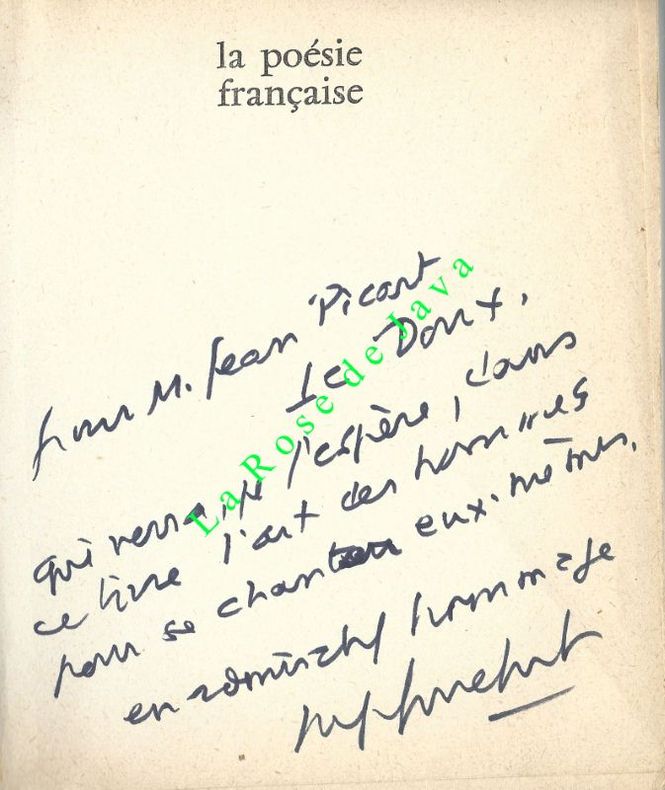 la poésie
française
pour M. Jean Picart
Le Doux,
qui verra, je l'espère, dans
ce livre l'art des hommes
pour se chanter eux-mêmes,
en admiratif hommage
La Rose de Java